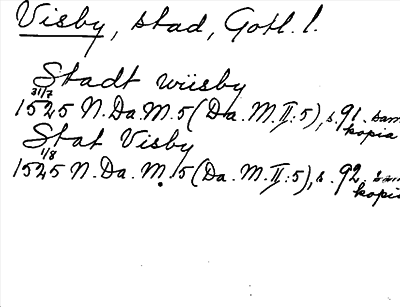 Visby, stad, Gotl. l.
Stadt wüsby
31/7
1525 N. Da. M. 5 (Da. M. II: 5), s. 91. sam.
kopia
Stat Visby
1/8
1525 N. Da. M. 5 (Da. M. II: 5), s. 92. sam
kopia